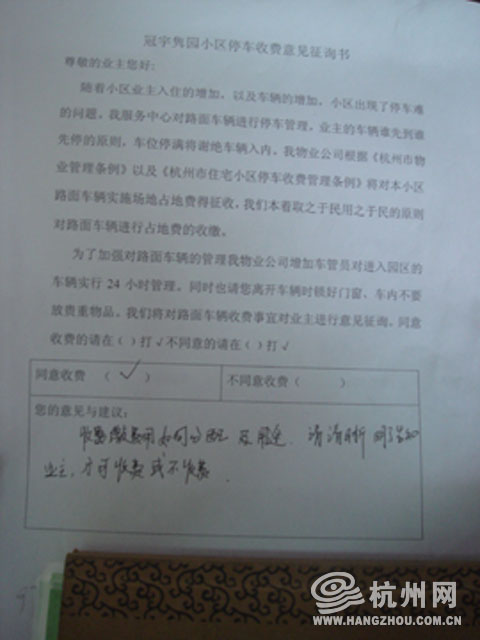 冠宇隽园小区停车收费意见征询书
尊敬的业主您好：
随着小区业主入住的增加，以及车辆的增加，小区出现了停车难
的问题。我服务中心对路面车辆进行停车管理，业主的车辆谁先到谁
先停的原则，车位停满将谢绝车辆入内。我物业公司根据《杭州市物
业管理条例》以及《杭州市住宅小区停车收费管理条例》将对本小区
路面车辆实施场地占地费得征收。我们本着取之于民用之于民的原则
对路面车辆进行占地费的收缴。
为了加强对路面车辆的管理我物业公司增加车管员对进入园区的
车辆实行 24 小时管理。同时也请您离开车辆时锁好门窗、车内不要
放贵重物品。我们将对路面车辆收费事宜对业主进行意见征询。同意
收费的请在（ ）打√不同意的请在（ ）打√
同意收费 （ √ ） 不同意收费（ ）
您的意见与建议：
费用如何分配及用途，请清晰
业主，才可收费或不收费。
杭州网
WWW.HANGZHOU.COM.CN